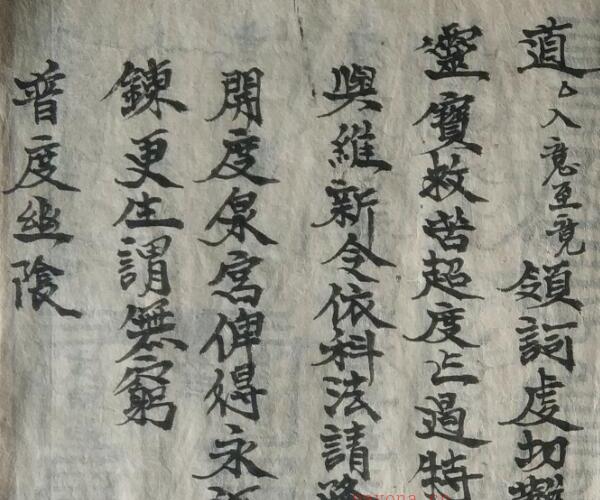 道 入意至竟 領詞虔切
靈寶救苦超度亡過特
與維新令依科法請
開度泉宮俾得永
鍊更生謂無窮
普度幽陰